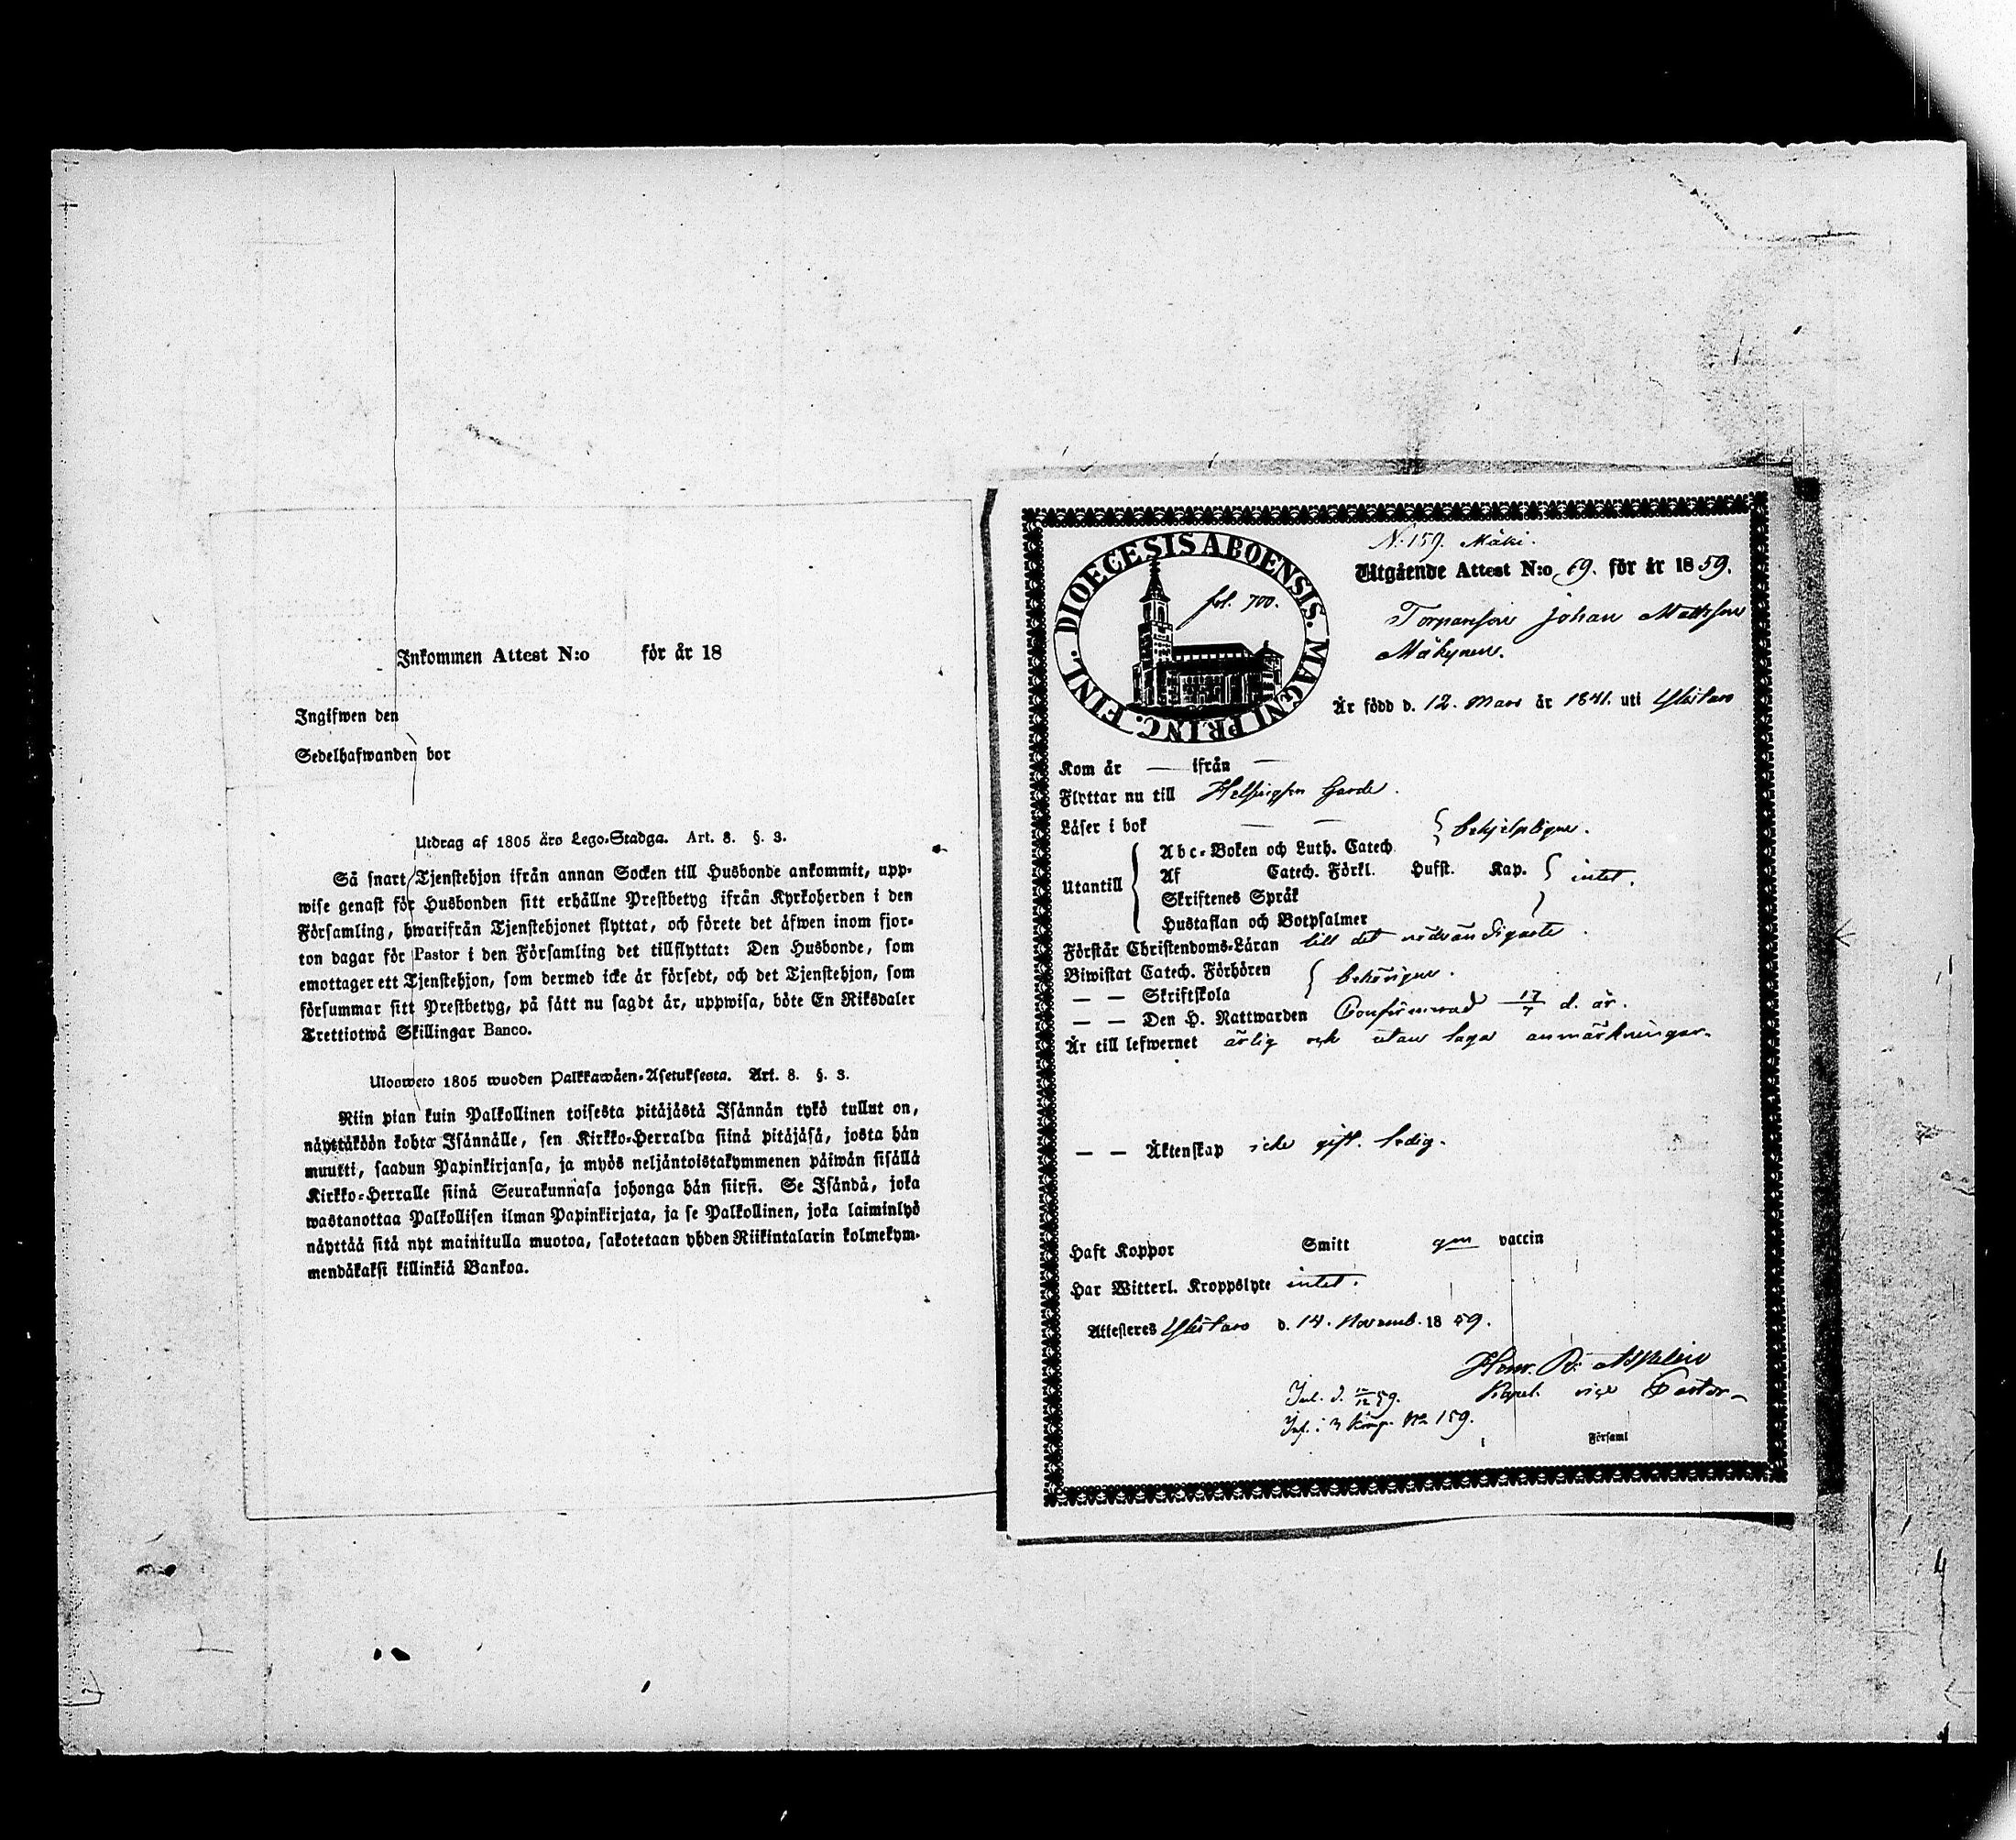 Inkommen Attest N:o för år 18
Ingifwen den
Sedelhafwanden bor
Utdrag af 1805 års Lego-Stadga. Art. 8. §. 3.
Så snart Tjenstehjon ifrån annan Socken till Husbonde ankommit, upp-
wise genast för Husbonden sitt erhållne Prestbetyg ifrån Kyrkoherden i den
Församling, hwarifrån Tjenstehjonet flyttat, och förete det äfwen inom fjor-
ton dagar för Pastor i den Församling det tillflyttat: Den Husbonde, som
emottager ett Tjenstehjon, som dermed icke är försedt, och det Tjenstehjon, som
försummar sitt Prestbetyg, på sätt nu sagdt är, uppwisa, böte En Riksdaler
Trettiotwå Skillingar Banco.
Ulosweto 1805 wuoden Palkkawäen-Asetuksesta. Art. 8. §. 3.
Niin pian kuin Palkollinen toisesta pitäjästä Isännän tykö tullut on,
näyttäköön kohta Isännälle, sen Kirkko-Herralda siinä pitäjäsä, josta hän
muutti, saadun Papinkirjansa, ja myös neljäntoistakymmenen päiwän sisällä
Kirkko-Herralle siinä Seurakunnasa johonga hän siirsi. Se Isändä, joka
wastanottaa Palkollisen ilman Papinkirjata, ja se Palkollinen, joka laiminlyö
näyttää sitä nyt mainitulla muotoa, sakotetaan yhden Riikintalarin kolmekym-
mendäkaksi killinkiä Bankoa.
DIOECESIS ABOENSIS. MAGNI PRINC. FINL.
fol. 700.
N. 159. Mäki.
Utgående Attest N:o 69. för år 1859.
Torparson Johan Mattsson
Mäkynen.
Är född d. 12. Mars år 1841. uti Ylistaro
Kom år — ifrån —
Flyttar nu till Helsingfors Garde.
Läser i bok — — behjelpligen.
Utantill
Abc-Boken och Luth. Catech
Af Catech. Förkl. Husst. Kap. intet.
Skriftenes Språk
Hustaflan och Botpsalmer
Förstår Christendoms-Läran till det nödvändigaste.
Biwistat Catech. Förhören behörigen.
— — Skriftskola
— — Den H. Nattwarden Confirmerad 17/7 d. år.
Är till lefwernet ärlig och utan laga anmärkningar.
— — Äktenskap icke gift. ledig.
Haft Koppor Smitt gm vaccin
Har Witterl. Kroppslyte intet.
Attesteres Ylistaro d. 14. Novemb. 1859.
Henr. R.
Kapel. vice Pastor
Inf. i 3 Komp. No 159.
Församl